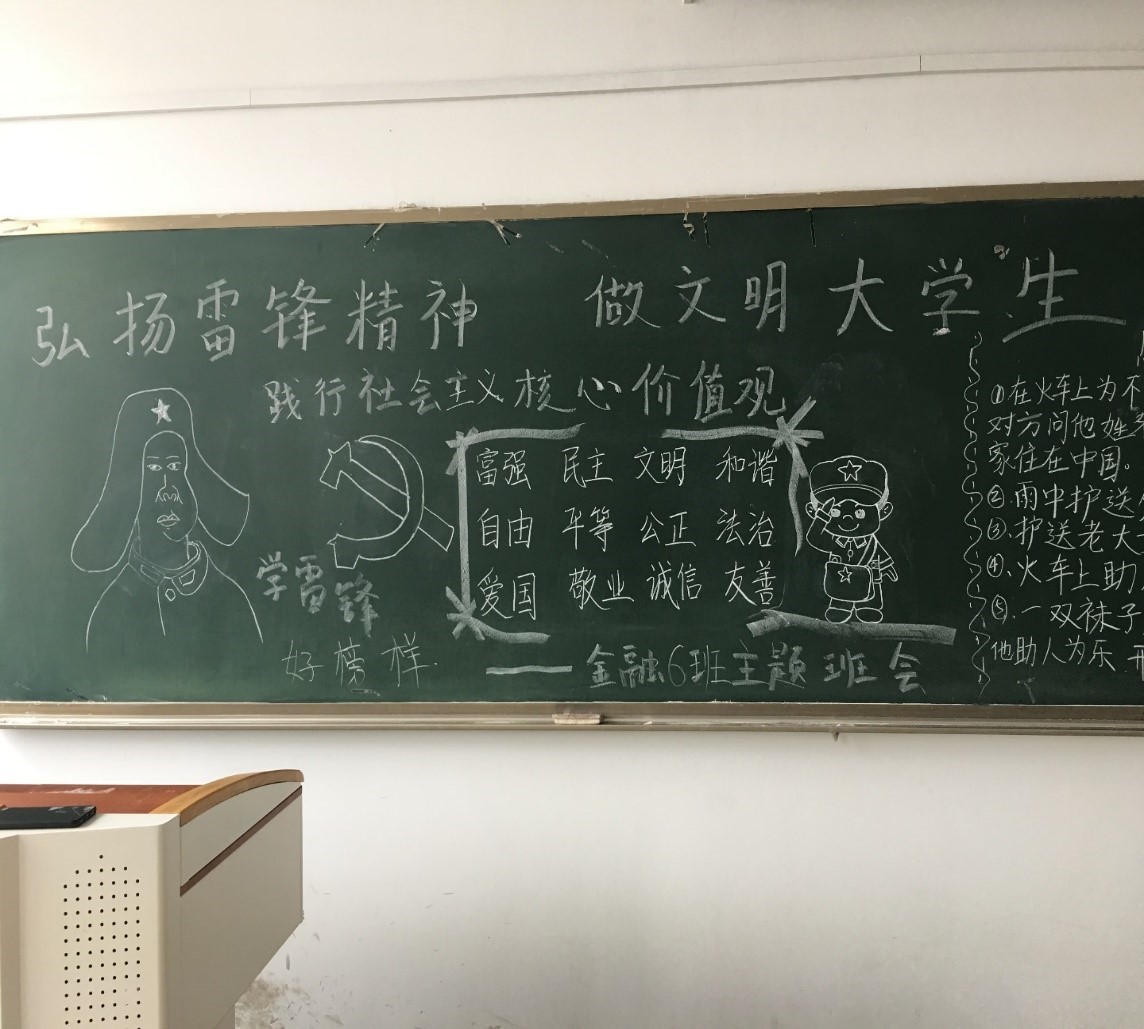 弘扬雷锋精神 做文明大学生
践行社会主义核心价值观
富强 民主 文明 和谐
自由 平等 公正 法治
爱国 敬业 诚信 友善
学雷锋
好榜样.
——金融6班主题班会
①在火车上为不
对方问他姓
家住在中国。
②.雨中护送
③.护送老大
④.火车上助
⑤.一双袜子
他助人为乐